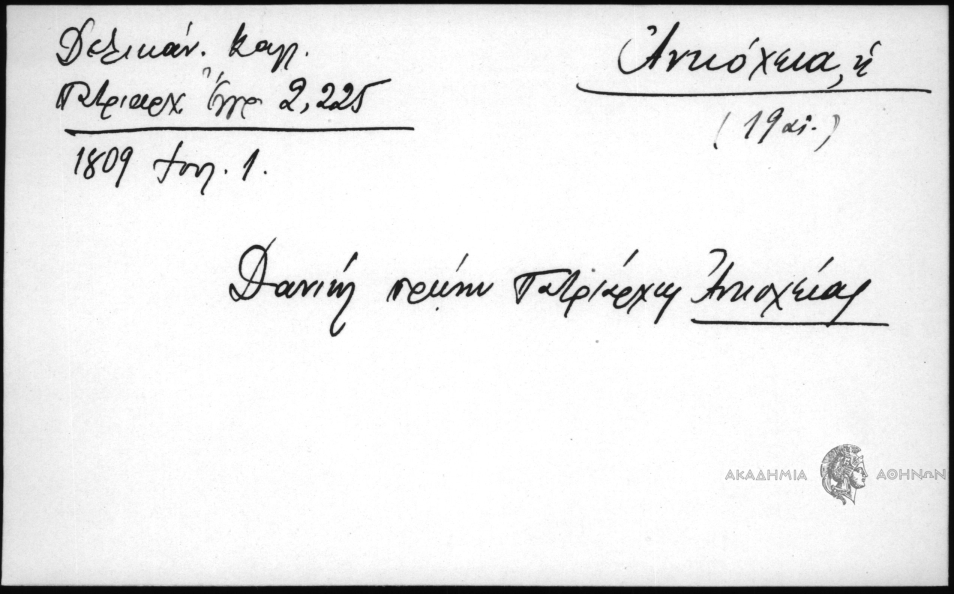 Δελικάν. Καλλ.
Πατριαρχ Ἔγγρ 2,225
1809 Ἰουλ. 1.
Ἀντιόχεια, ἡ
(19 αἰ.)
Δανιήλ πρώην Πατριάρχης Ἀντιοχείας
ΑΚΑΔΗΜΙΑ ΑΘΗΝΩΝ